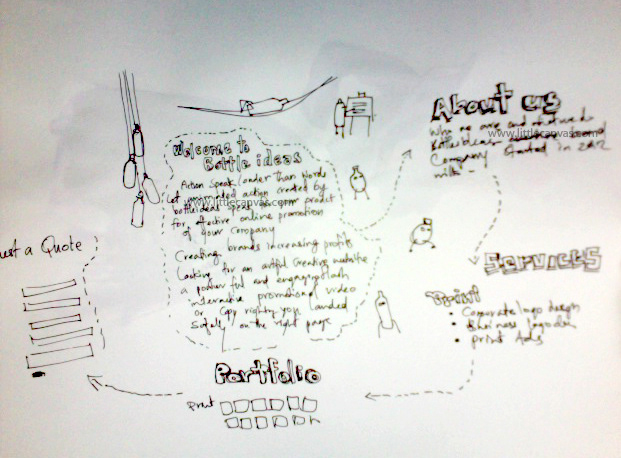 Welcome to
Bottle ideas
Action Speak Louder than Words
Let your action created by
bottleideas speak your product
for effective online promotion
of your Company
Creating brands increasing profits
Looking for an artful Creative website
a powerful and engaging flash
interactive promotional video
or Copy righty you landed
Safely on the right page
www.littlecanvas.com
About us
Who we are and what we do
Bottleideas
Company Started in 2012
with -
www.littlecanvas.com
Services
Print
• Corporate logo design
• Business
• Print Ads
Portfolio
Print
a Quote